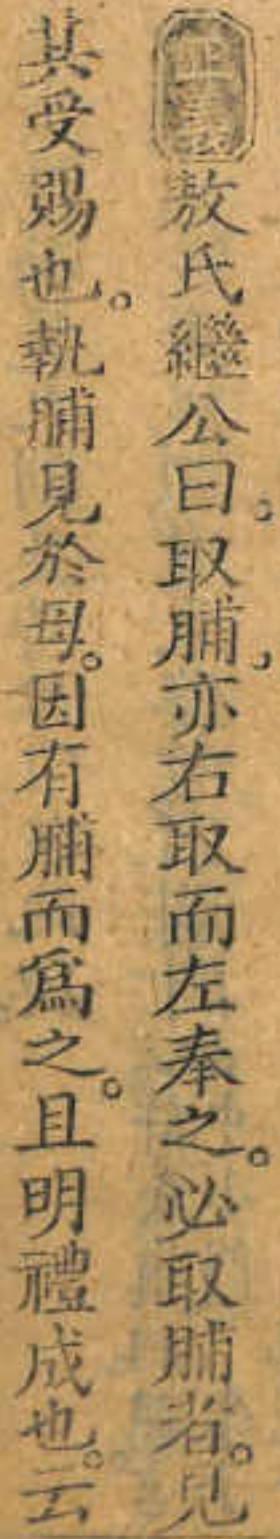 正義敖氏繼公曰。取脯。亦右取而左奉之。必取脯者。見
其受賜也。執脯見於母。因有脯而爲之。且明禮成也。云